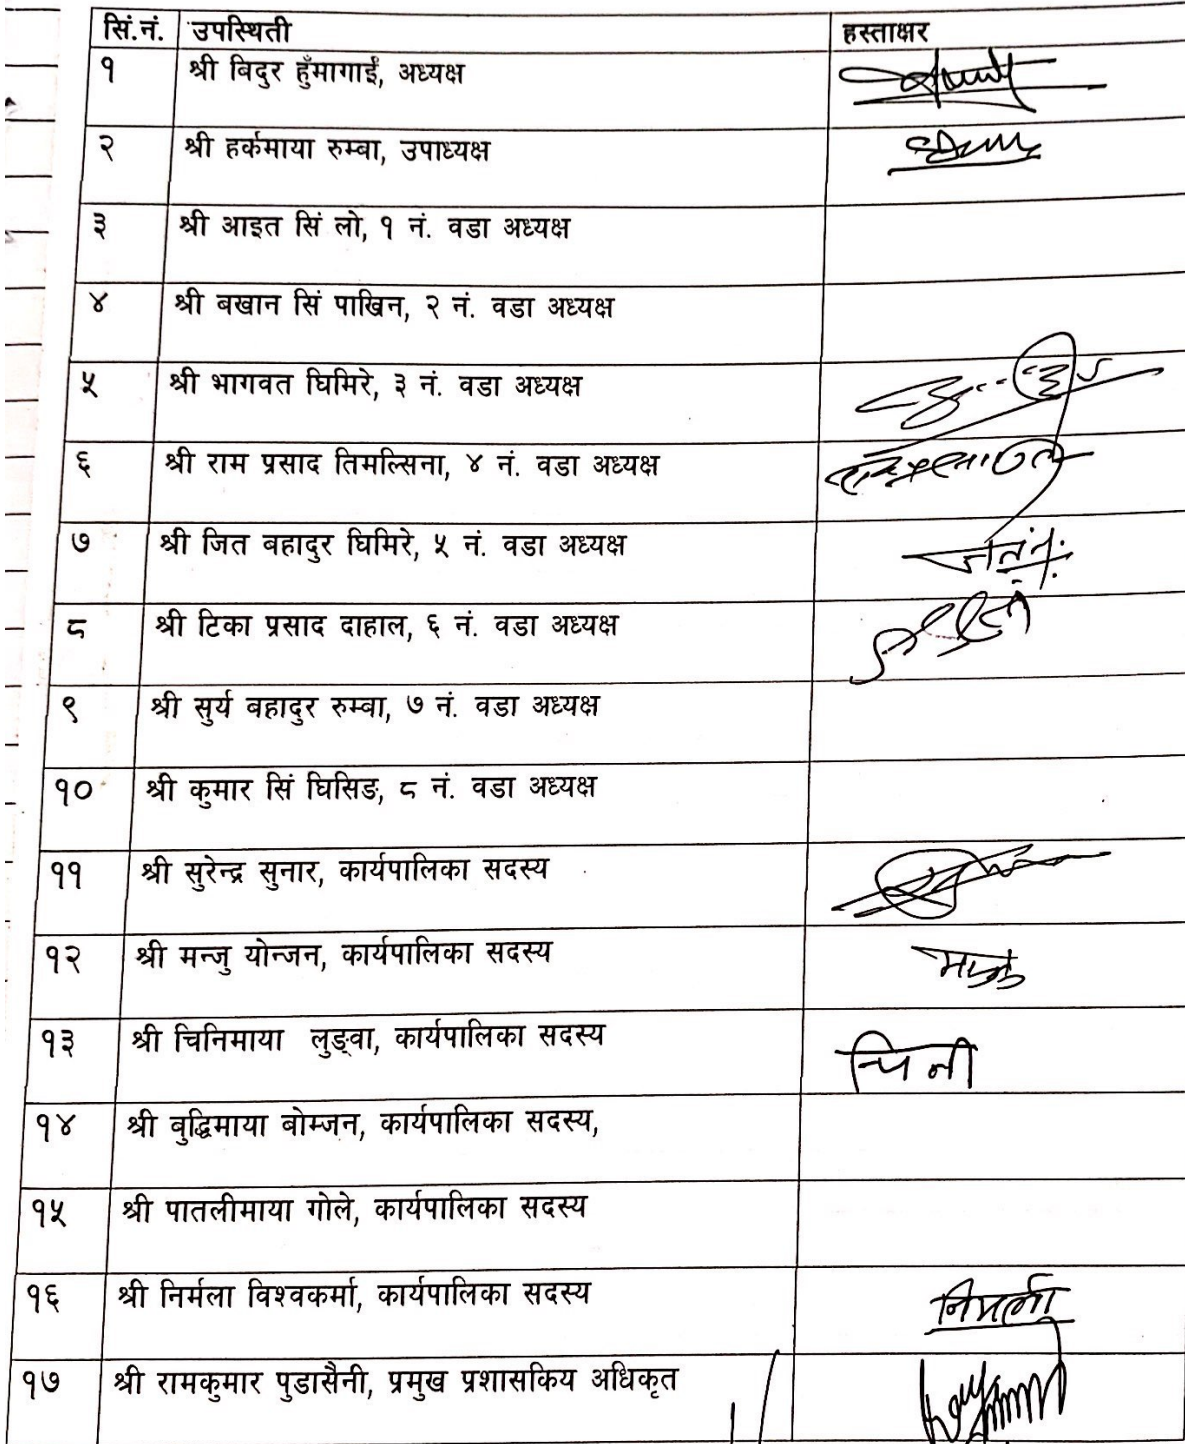 सिं.नं. उपस्थिती हस्ताक्षर
१ श्री बिदुर हुँमागाईं, अध्यक्ष
२ श्री हर्कमाया रुम्बा, उपाध्यक्ष
३ श्री आइत सिं लो, १ नं. वडा अध्यक्ष
४ श्री बखान सिं पाखिन, २ नं. वडा अध्यक्ष
५ श्री भागवत घिमिरे, ३ नं. वडा अध्यक्ष
६ श्री राम प्रसाद तिमल्सिना, ४ नं. वडा अध्यक्ष
७ श्री जित बहादुर घिमिरे, ५ नं. वडा अध्यक्ष
८ श्री टिका प्रसाद दाहाल, ६ नं. वडा अध्यक्ष
९ श्री सुर्य बहादुर रुम्बा, ७ नं. वडा अध्यक्ष
१० श्री कुमार सिं घिसिङ, ८ नं. वडा अध्यक्ष
११ श्री सुरेन्द्र सुनार, कार्यपालिका सदस्य
१२ श्री मन्जु योन्जन, कार्यपालिका सदस्य
१३ श्री चिनिमाया लुङ्वा, कार्यपालिका सदस्य चिनी
१४ श्री बुद्धिमाया बोम्जन, कार्यपालिका सदस्य,
१५ श्री पातलीमाया गोले, कार्यपालिका सदस्य
१६ श्री निर्मला विश्वकर्मा, कार्यपालिका सदस्य निर्मला
१७ श्री रामकुमार पुडासैनी, प्रमुख प्रशासकिय अधिकृत